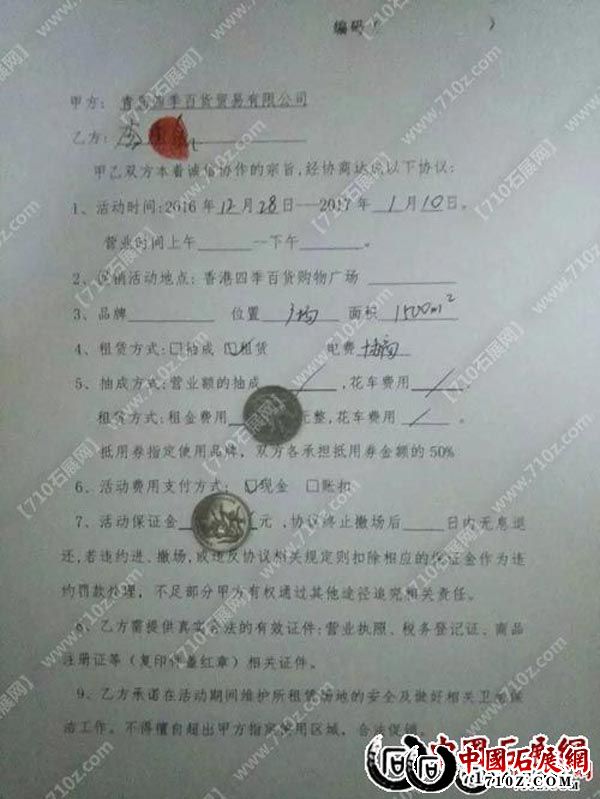 编码（ ）
甲方： 青岛四季百货贸易有限公司
乙方：
甲乙双方本着诚信协作的宗旨,经协商达成以下协议:
1、活动时间:2016年12月28日---2017年1月10日。
营业时间上午______--下午______。
2、促销活动地点: 香港四季百货购物广场 ________
3、品牌________ 位置 广场 面积 1500m²
4、租赁方式:□抽成 ☑租赁 电费
5、抽成方式:营业额的抽成 / ,花车费用 / 。
租赁方式:租金费用 元整,花车费用 / 。
抵用券指定使用品牌，双方各承担抵用券金额的50%
6、活动费用支付方式: ☑现金 □账扣
7、活动保证金 元,协议终止撤场后____日内无息退
还,若违约进、撤场,或违反协议相关规定则扣除相应的保证金作为违
约罚款处理，不足部分甲方有权通过其他途径追究相关责任。
8、乙方需提供真实合法的有效证件:营业执照、税务登记证、商品
注册证等（复印件盖红章）相关证件。
9、乙方承诺在活动期间维护所租赁场地的安全及做好相关卫生保
洁工作。不得擅自超出甲方指定使用区域，合法促销。
中國石展網
www.710z.com
【710石展网】
www.710z.com